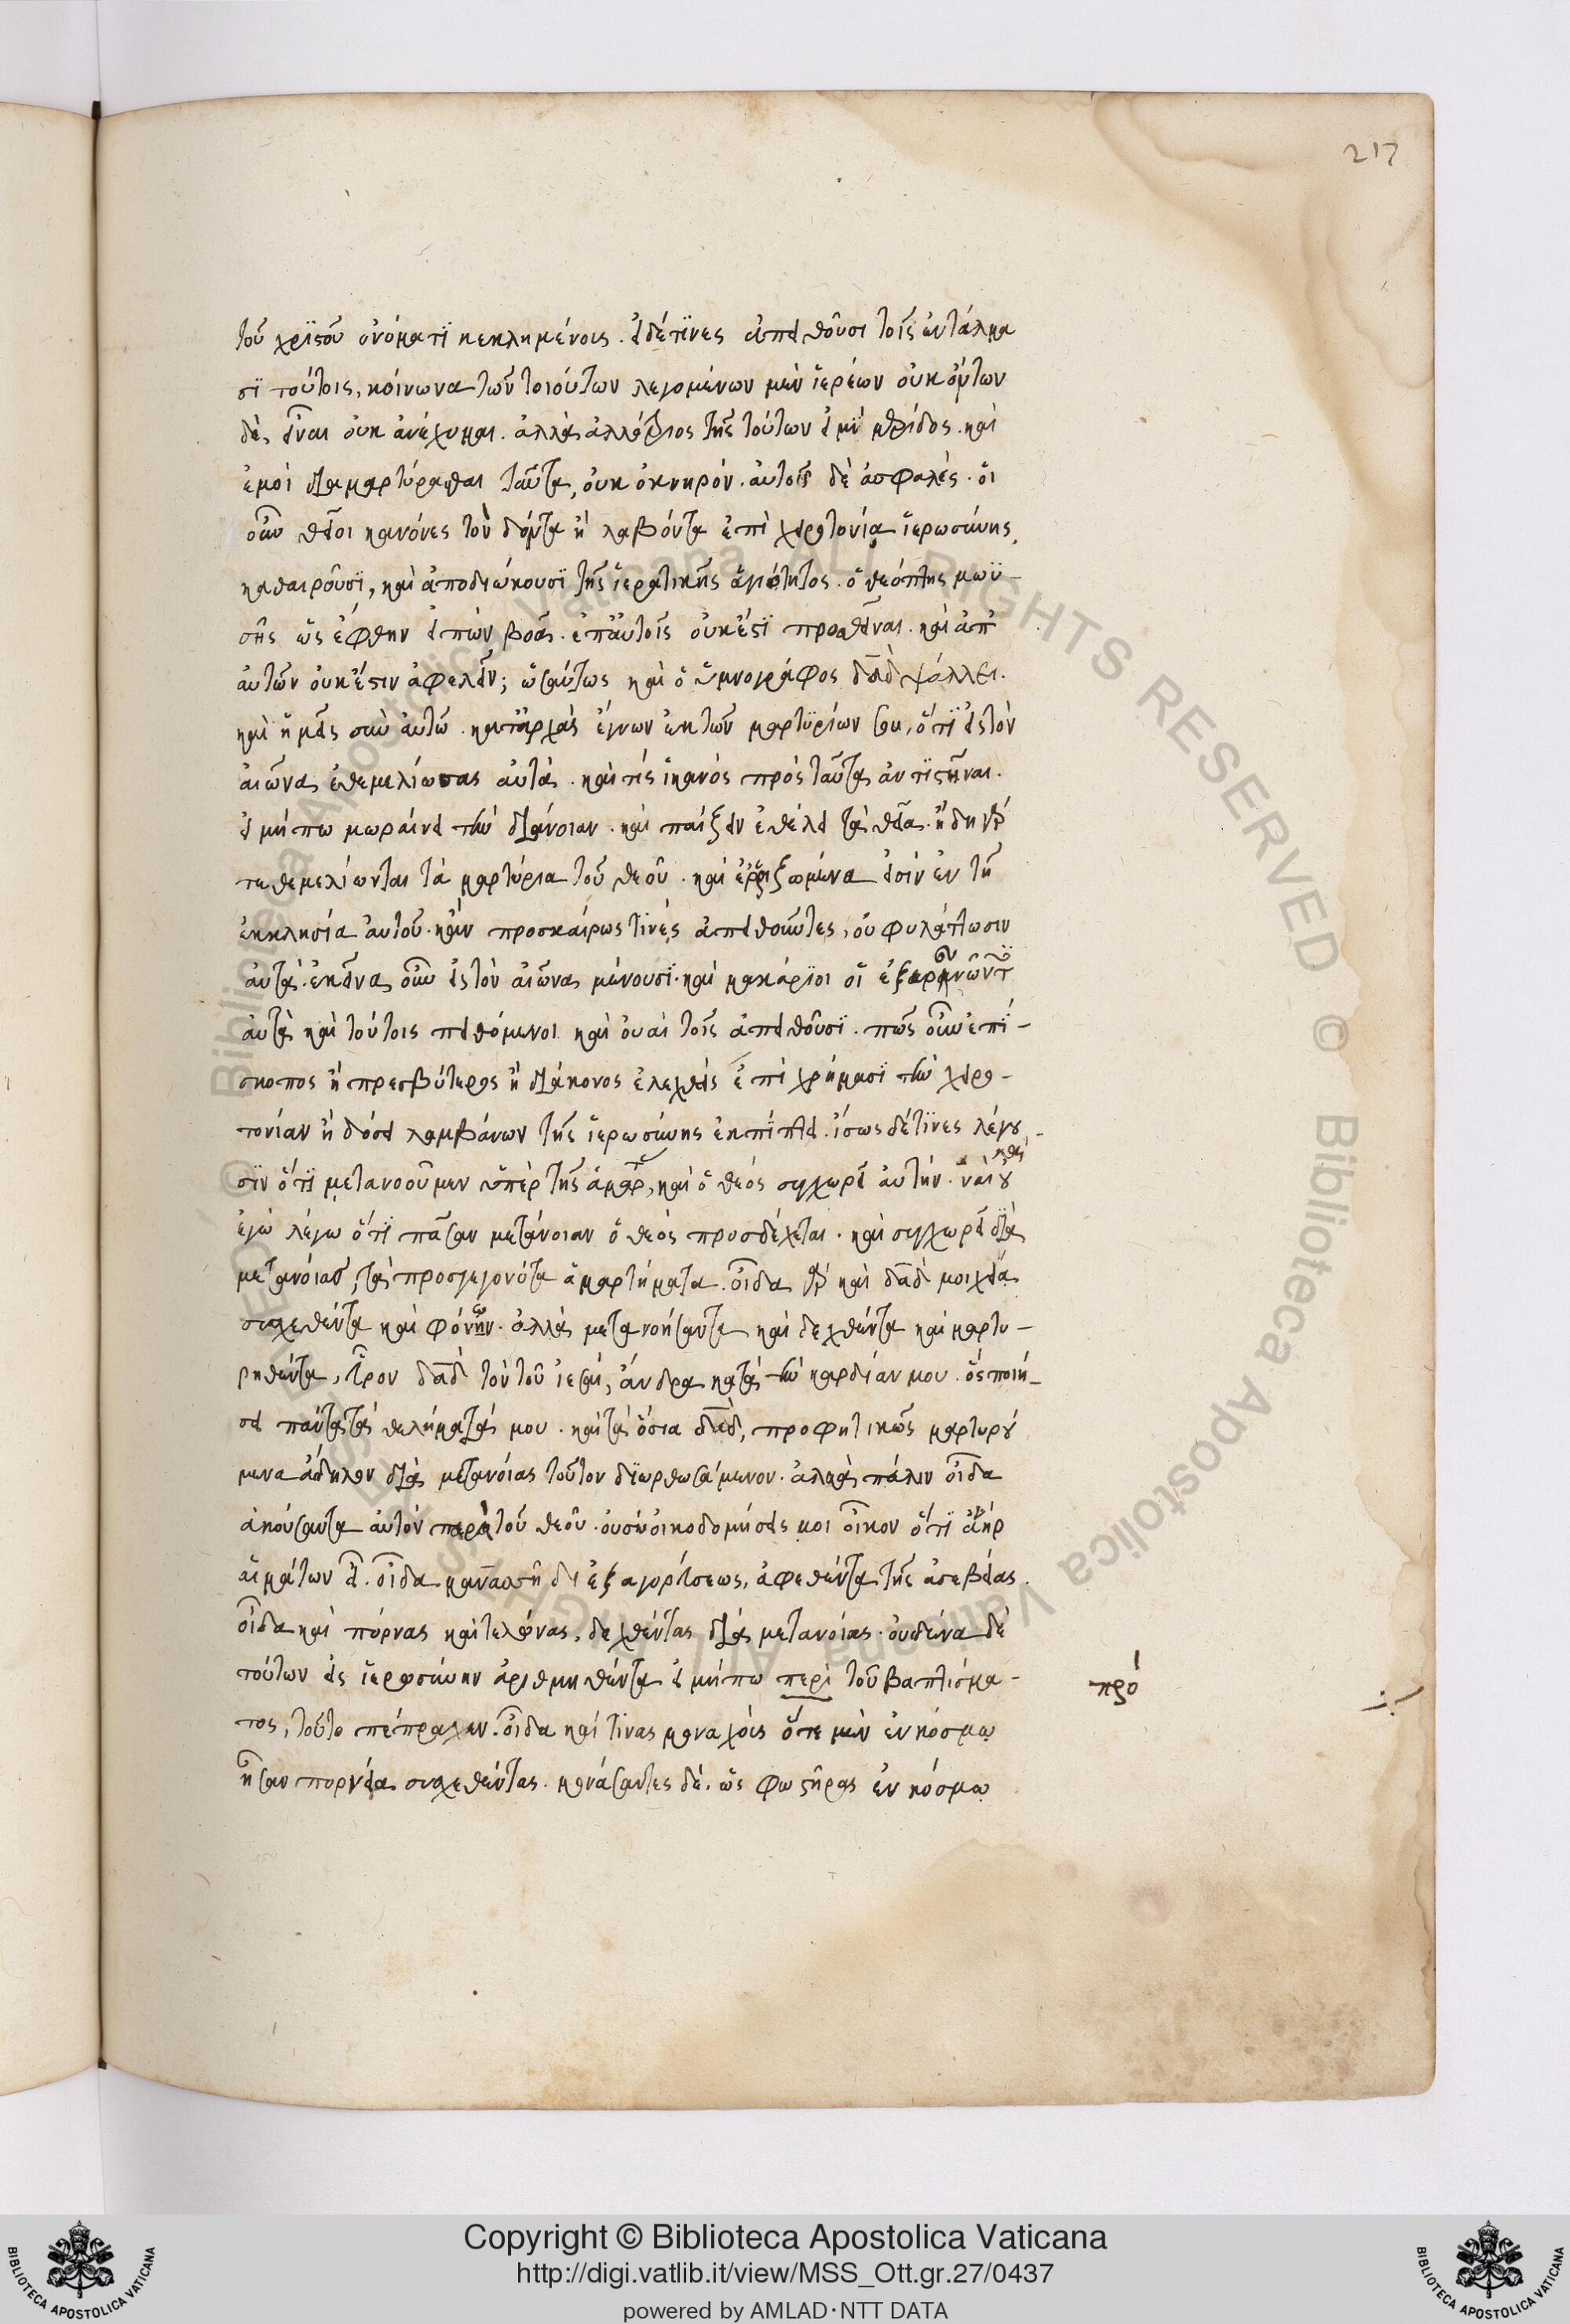 217
τοῦ χριστοῦ ὀνόματϊ κεκλημένοις. εἰ δέ τϊνες ἀπειθοῦσι τοῖς ἐντάλμα
σϊ τούτοις, κοίνωνα τῶν τοιούτων λεγομένων μὲν ἱερέων οὐκ ὄντων
δὲ, εἶναι οὐκ ἀνέχομαι. ἀλλὰ ἀλλότριος τῆς τούτων εἰμὶ μερίδος. καὶ
ἐμοὶ διαμαρτύρασθαι ταῦτα, οὐκ ὀκνηρόν. αὐτοῖς δὲ ἀσφαλές. οἱ
οὖν θεῖοι κανόνες τὸν δόντα ἢ λαβόντα ἐπὶ χειροτονία ἱερωσύνης,
καθαιροῦσϊ, καὶ ἀποδιώκουσϊ τῆς ἱερατικῆς ἁγιότητος. ὁ θεόπτης μωϋ-
σῆς ὡς ἔφθην εἰπὼν βοᾶ. ἐπ' αὐτοῖς οὐκ έστϊ προσθεῖναι. καὶ ἀπ'
αὐτῶν οὐκ έστιν ἀφελεῖν; ὡσαύτως καὶ ὁ ὑμνογράφος δαδ ψάλλει.
καὶ ἡμεῖς σὺν αὐτῶ. κατ' ἀρχὰς ἔγνων ἐκ τῶν μαρτϋρίων σου, ὅτϊ εἰς τὸν
αἰῶνα ἐθεμελίωσας αὐτά. καὶ τίς ἱκανός πρὸς ταῦτα ἀντϊστῆναι.
εἰ μήπω μωραίνει τὴν διάνοιαν. καὶ παίξειν ἐθέλει τὰ θεῖα. ἤδη γὰρ
τεθεμελίωνται τὰ μαρτύρια τοῦ θεοῦ. καὶ ἐρριζωμένα εἰσὶν ἐν τῆ
ἐκκλησία αὐτοῦ. κἂν προσκαίρως τινές ἀπειθοῦντες, οὐ φυλάττωσιν
αὐτά. ἐκεῖνα οὖν εἰς τὸν αἰῶνα μένουσϊ. καὶ μακάρϊοι οἱ ἐξερευνῶντες
αὐτὰ καὶ τούτοις πειθόμενοι καὶ οὐαὶ τοῖς ἀπειθοῦσϊ. πῶς οὖν ἐπί-
σκοπος ἢ πρεσβύτερος ἢ διάκονος ἐλεχθεὶς ἐπὶ χρήμασϊ τὴν χειρο-
τονίαν ἢ δόσει λαμβάνων τῆς ἱερωσύνης ἐκπίπτει. ἴσως δέ τϊνες λέγου-
σϊν ὅτϊ μετανοοῦμεν ὑπὲρ τῆς ἁμαρτίας, καὶ ὁ θεός συγχωρεῖ αὐτήν. ναὶ
ἐγὼ λέγω ὅτϊ πᾶσαν μετάνοιαν ὁ θεός προσδέχεται. καὶ συγχωρεῖ διὰ
μετανοίας, τὰ προσγεγονότα ἁμαρτήματα. οἶδα γὰρ καὶ δαδ μοιχεία
συσχεθέντα καὶ φόνω. ἀλλὰ μετανοήσαντα καὶ δεχθέντα καὶ μαρτυ-
ρηθέντα, εὗρον δαδ τὸν τοῦ ἰεσαὶ, ἄνδρα κατὰ τὴν καρδίαν μου. ὃς ποιή-
σει πάντα τὰ θελήματά μου. καὶ τὰ ὅσια δαδ, προφητικῶς μαρτυρού
μενα ἄδηλον διὰ μετανοίας τοῦτον διωρθωσάμενον. ἀλλὰ πάλιν οἶδα
ἀκούσαντα αὐτὸν παρὰ τοῦ θεοῦ. οὐ σὺ οἰκοδομήσεις μοι οἶκον ὅτϊ ἀνὴρ
αἱμάτων εἶ. οἶδα μανασσῆ δι' ἐξαγορεύσεως, ἀφεθέντα τῆς ἀσεβείας.
οἶδα καὶ πόρνας καὶ τελώνας, δεχθέντας διὰ μετανοίας. οὐδένα δὲ
τούτων εἰς ἱερωσύνην ἀριθμηθέντα εἰ μήπω περὶ τοῦ βαπτίσμα-
πρό
τος, τοῦτο πέπραχεν. οἶδα καί τινας μοναχοὺς ὅτε μὲν ἐν κόσμω
ἦσαν πορνεία συσχεθέντας. μονάσαντες δὲ. ὡς φωστῆρας ἐν κόσμω
© Biblioteca Apostolica Vaticana ALL RIGHTS RESERVED © Biblioteca Apostolica Vaticana ALL RIGHTS RESERVED
Copyright © Biblioteca Apostolica Vaticana
http://digi.vatlib.it/view/MSS_Ott.gr.27/0437
powered by AMLAD·NTT DATA
BIBLIOTECA APOSTOLICA VATICANA
BIBLIOTECA APOSTOLICA VATICANA